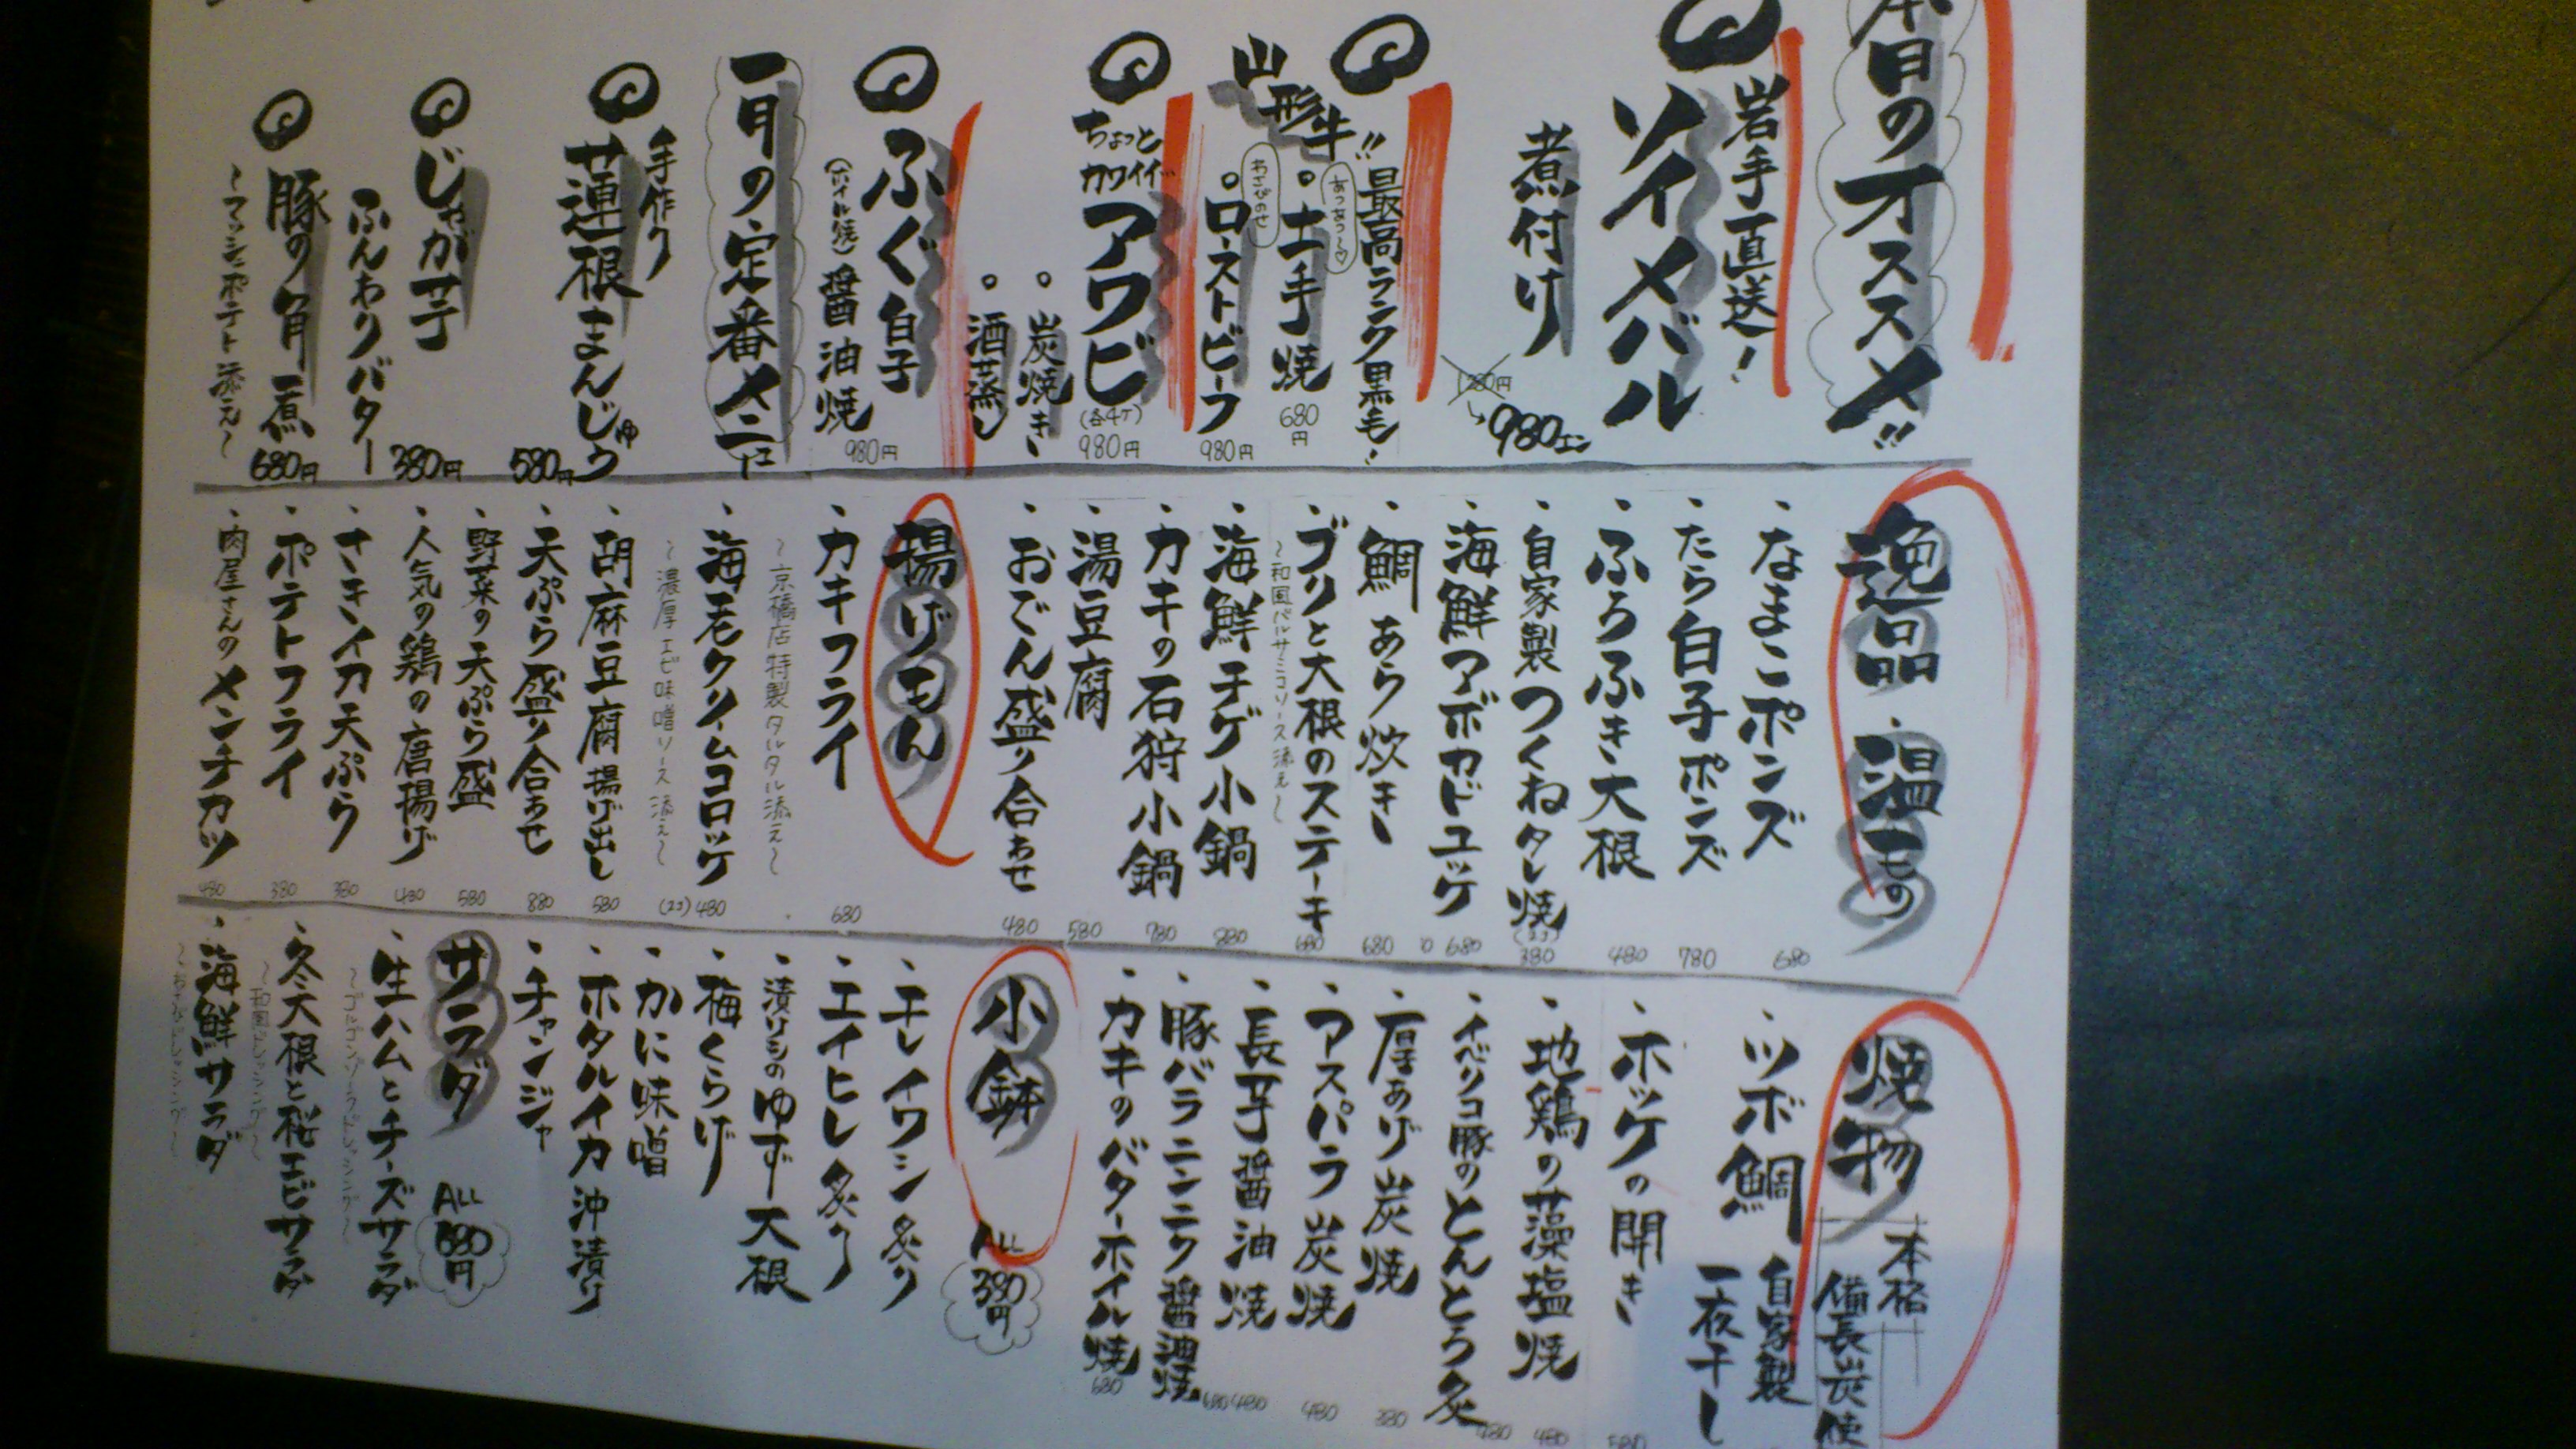 本日のオススメ!!
岩手直送!
ソイメバル
煮付け
1280円
→980エン
最高ランク黒毛!
山形牛!!
・土手焼
あっあっ〜♡
680円
・ローストビーフ
わさびのせ
980円
ちょっとカワイイ…
アワビ
(各4ケ)
980円
・炭焼き
・酒蒸し
ふぐ白子
(ホイル焼)醤油焼
980円
一月の定番メニュー
手作り
蓮根まんじゅう
580円
じゃが芋
ふんわりバター
380円
豚の角煮
680円
〜マッシュポテト添え〜
逸品・温もの
・なまこポンズ 680
・たら白子ポンズ 780
・ふろふき大根 480
・自家製つくねタレ焼 (2コ) 380
・海鮮アボカドユッケ 680
・鯛あら炊き 680
・ブリと大根のステーキ 680
〜和風バルサミコソース添え〜
・海鮮チゲ小鍋 880
・カキの石狩小鍋 780
・湯豆腐 580
・おでん盛り合わせ 480
揚げもん
・カキフライ 680
〜京橋店特製タルタル添え〜
・海老クリームコロッケ (2コ) 480
〜濃厚エビ味噌ソース添え〜
・胡麻豆腐揚げ出し 580
・天ぷら盛り合わせ 880
・野菜の天ぷら盛 580
・人気の鶏の唐揚げ 480
・さきイカ天ぷら 380
・ポテトフライ 380
・肉屋さんのメンチカツ 480
焼物
本格
備長炭使
・ツボ鯛
自家製
一夜干し
・ホッケの開き 580
・地鶏の藻塩焼 480
・イベリコ豚のとんとろ炙 780
・厚あげ炭焼 380
・アスパラ炭焼 480
・長芋醤油焼 480
・豚バラニンニク醤油焼 680
・カキのバターホイル焼 680
小鉢
ALL
380円
・干レイワシ炙り
・エイヒレ炙り
・漬けシのゆず大根
・梅くらげ
・かに味噌
・ホタルイカ沖漬け
・チャンジャ
サラダ
ALL
680円
・生ハムとチーズサラダ
〜ゴルゴンゾーラドレッシング〜
・冬大根と桜エビサラダ
〜和風ドレッシング〜
・海鮮サラダ